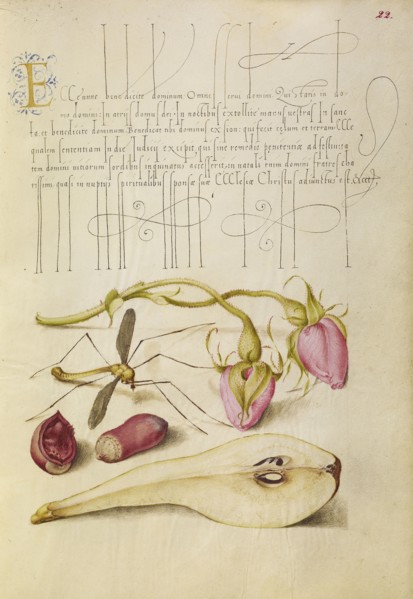 22.
Ecce nunc benedicite dominum Omnes servi domini. Qui statis in do-
mo domini, in atrijs domus dei: In noctibus extollite manus vestras In sanc-
ta, et benedicite dominum. Benedicat nos dominus ex sion: qui fecit celum et terram.
quam sententiam in die Judicij excipit, qui sine remedio penitentiæ ad festiuita-
tem domini uitiorum sordibus inquinatus accesserit, in natali enim domini fratres cha-
rissimi quasi in nuptijs spiritualibus sponsæ suæ Ecclesiæ Christus adiunctus est.